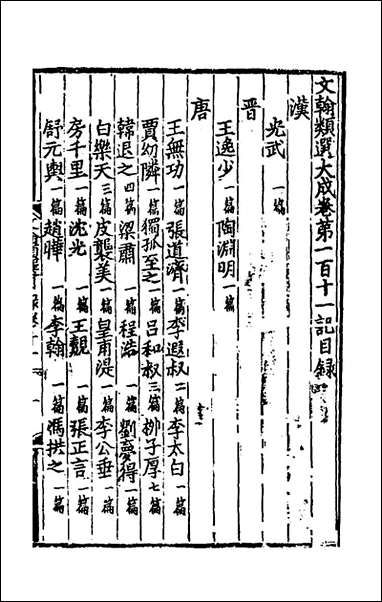 文翰類選大成卷第一百十一記目錄
漢
光武一篇
晉
王逸少一篇 陶淵明一篇
唐
王無功一篇 張道濟一篇 李遐叔二篇 李太白一篇
賈幼隣一篇 獨孤至之一篇 呂和叔三篇 柳子厚七篇
韓退之四篇 梁肅一篇 程浩一篇 劉夢得一篇
白樂天三篇 皮襲美一篇 皇甫湜一篇 李公垂一篇
房千里一篇 沈光一篇 王兢一篇 張正言一篇
舒元輿一篇 趙曄一篇 李翰一篇 馮拱之一篇